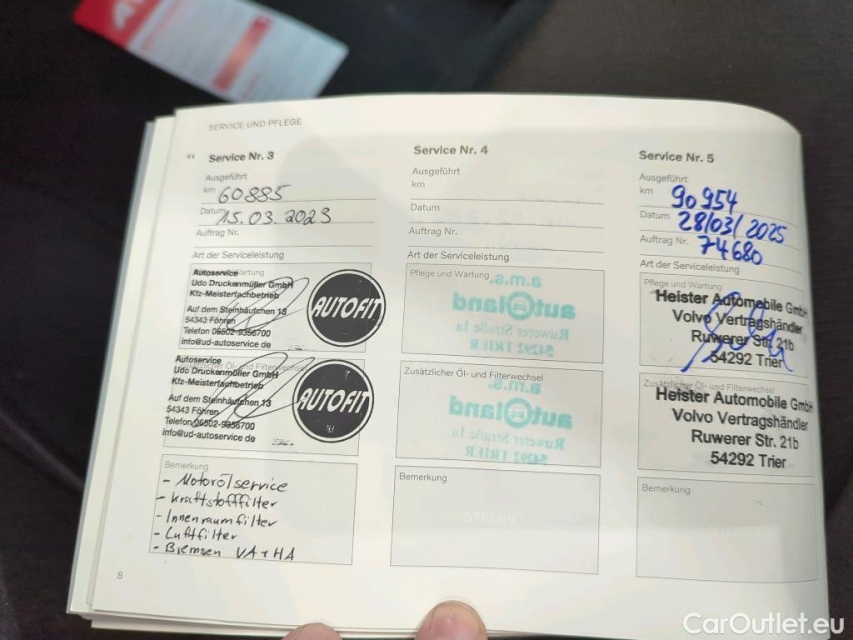 SERVICE UND PFLEGE
Service Nr. 3
Ausgeführt
km 60885
Datum 15.03.2023
Auftrag Nr.
Art der Serviceleistung
Autoservice
Udo Druckenmüller GmbH
Kfz-Meisterfachbetrieb
Auf dem Steinhäutchen 13
54343 Föhren
Telefon 06502-9356700
info@ud-autoservice.de
AUTOFIT
Autoservice
Udo Druckenmüller GmbH
Kfz-Meisterfachbetrieb
Auf dem Steinhäutchen 13
54343 Föhren
Telefon 06502-9356700
info@ud-autoservice.de
AUTOFIT
Bemerkung
- Motorölservice
- Kraftstofffilter
- Innenraumfilter
- Luftfilter
- Bremsen VA+HA
8
Service Nr. 4
Ausgeführt
km
Datum
Auftrag Nr.
Art der Serviceleistung
Pflege und Wartung
a.m.s.
autoland
Ruwerer Straße 1a
54292 TRIER
Zusätzlicher Öl- und Filterwechsel
a.m.s.
autoland
Ruwerer Straße 1a
54292 TRIER
Bemerkung
Service Nr. 5
Ausgeführt
km 90954
Datum 28/03/2025
Auftrag Nr. 74680
Art der Serviceleistung
Pflege und Wartung
Heister Automobile GmbH
Volvo Vertragshändler
Ruwerer Str. 21b
54292 Trier
Zusätzlicher Öl- und Filterwechsel
Heister Automobile GmbH
Volvo Vertragshändler
Ruwerer Str. 21b
54292 Trier
Bemerkung
CarOutlet.eu